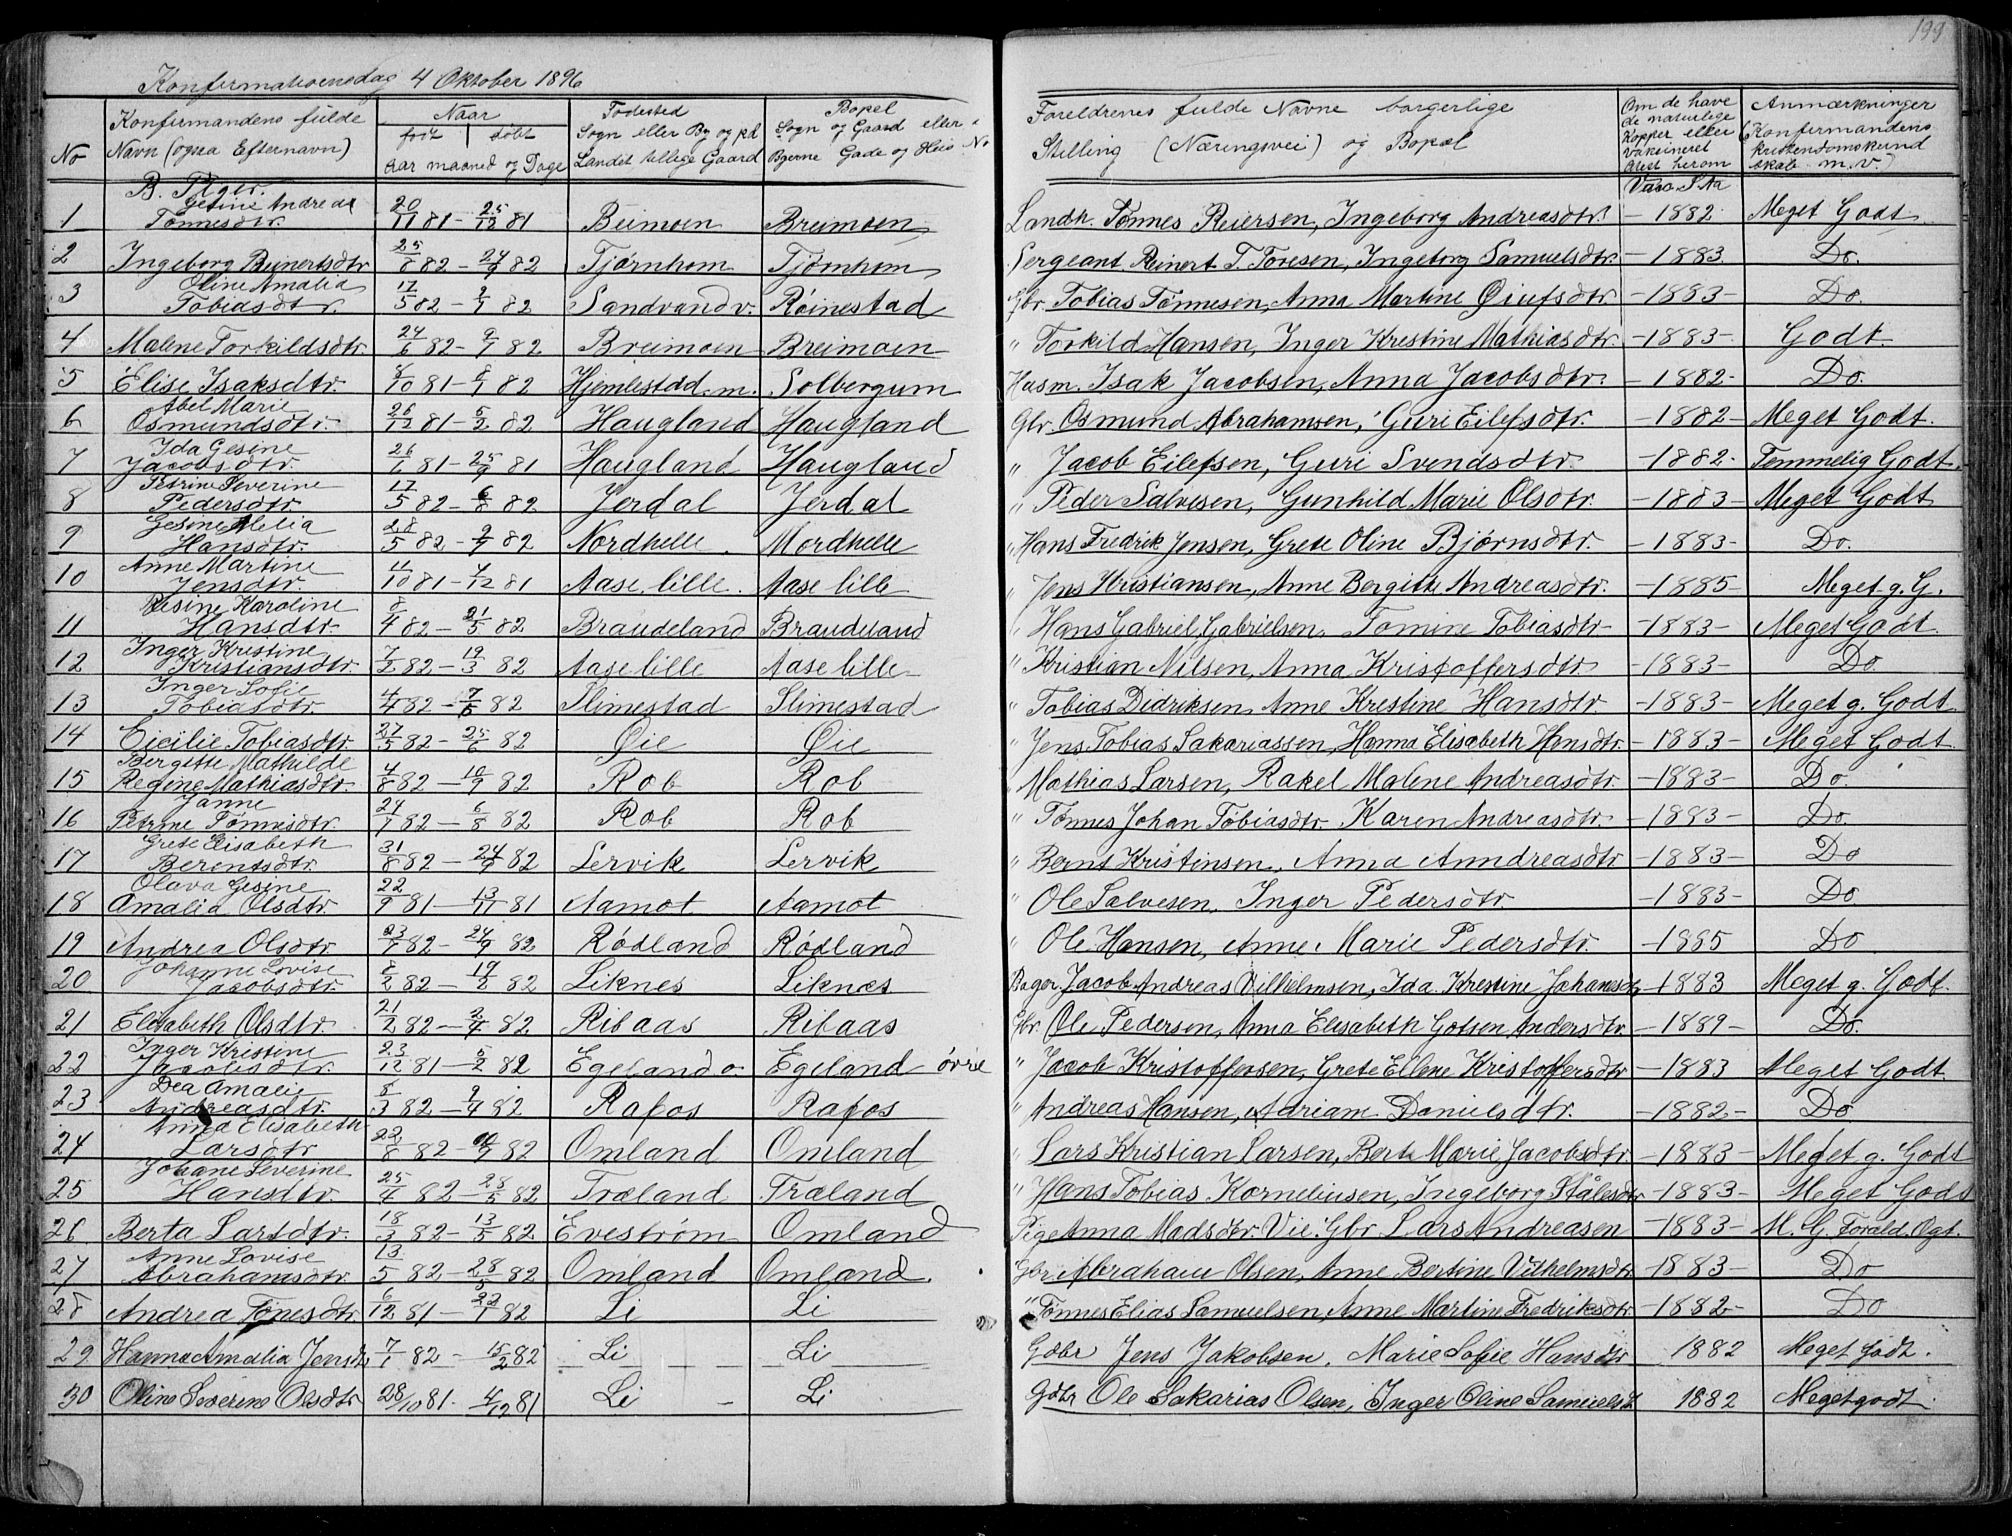 199
Konfirmationsdag 4 Oktober 1896
No
Konfirmandens fulde
Navn (ogsaa Efternavn)
Naar
født | døbt
Aar maaned og Dage
Fødested
Sogn eller By og paa
Landet tillige Gaard
Bopel
Sogn og Gaard eller i
Byerne Gade og Hus No
Foreldrenes fulde Navne borgerlige
Stilling (Næringsvei) og Bopæl
Om de have
de naturlige
Kopper eller
Vaksineret
Atest herom
Anmærkninger
(Konfirmandens
kristendomskund
skab m. v.)
B. Piger. Vacc. Ata
1 Gesine Andrea Tønnesdtr. 20/11 81 - 25/12 81 Beimoen Breimoen Landh. Tønnes Reiersen, Ingeborg Andreasdtr. - 1882 Meget Godt
2 Ingeborg Reinertsdtr 25/8 82 - 24/9 82 Tjørnhom Tjørnhom Sergeant Reinert T. Toresen, Ingeborg Samuelsdtr. - 1883 Do.
3 Oline Amalia Tobiasdtr. 17/5 82 - 2/7 82 Sandvand v. Røinestad Gbr. Tobias Tønnesen, Anna Martine Øiufsdtr - 1883 - Do.
4 Malene Torkildsdtr 24/6 82 - 9/7 82 Breimoen Breimoen " Torkild Hansen, Inger Kristine Mathiasdtr. - 1883 - Godt.
5 Elise Isaksdtr. 8/10 81 - 8/1 82 Hjemlestad. m. Solbergum Husm. Isak Jacobsen, Anna Jacobsdtr. - 1882 - Do.
6 Abel Marie Osmundsdtr. 26/12 81 - 5/2 82 Haugland Haugland Gbr. Osmund Abrahamsen, Guri Eilefsdtr. - 1882 - Meget Godt.
7 Ida Gesine Jacobsdtr. 26/6 81 - 25/9 81 Haugland Haugland " Jacob Eilefsen, Guri Svendsdtr - 1882 - Temmelig Godt.
8 Petrine Severine Pedersdtr. 17/5 82 - 6/8 82 Jerdal Jerdal " Peder Salvesen, Gunhild Marie Olsdtr. - 1883 - Meget Godt
9 Gesine Melia Hansdtr. 28/5 82 - 9/7 82 Nordhelle. Nordhelle " Hans Fredrik Jensen, Grete Oline Bjørnsdtr. - 1883 - Do.
10 Anne Martine Jensdtr. 11/10 81 - 4/12 81 Aase lille. Aase lille " Jens Kristiansen, Anne Bergitte Andreasdtr. - 1885 - Meget g. G.
11 Karoline Hansdtr. 8/4 82 - 21/5 82 Braudeland Braudeland " Hans Gabriel Gabrielsen, Tomine Tobiasdtr - 1883 - Meget Godt.
12 Inger Kristine Kristiansdtr. 7/2 82 - 19/3 82 Aase lille Aase lille " Kristian Nilsen, Anna Kristoffersdtr - 1883 - Do
13 Inger Sofie Tobiasdtr. 4/4 82 - 7/5 82 Slimestad Slimestad " Tobias Didriksen, Anne Kristine Hansdtr - 1883 - Meget g. Godt
14 Cicilie Tobiasdtr. 27/5 82 - 25/6 82 Øie Øie " Jens Tobias Sakariassen, Hanna Elisabeth Hansdtr - 1883 - Meget Godt
15 Bergitte Mathilde Regine Mathiasdtr. 4/8 82 - 10/9 82 Rob Rob " Mathias Larsen, Rakel Malene Andreasdtr. - 1883 - Do
16 Janne Petrine Tønnesdtr. 24/7 82 - 6/8 82 Rob Rob " Tønnes Johan Tobiasdtr. Karen Andreasdtr. - 1883 - Do.
17 Grete Elisabeth Berentsdtr. 31/8 82 - 24/9 82 Lervik Lervik " Bernt Kristinsen, Anna Anndreasdtr - 1883 - Do
18 Olava Gesine Amalia Olsdtr. 22/9 81 - 13/11 81 Aamot Aamot " Ole Salvesen, Inger Pedersdtr. - 1883 - Do.
19 Andrea Olsdtr. 23/7 82 - 24/9 82 Rødland Rødland " Ole Hansen, Anne Marie Pedersdtr. - 1885 Do
20 Johanne Lovise Jacobsdtr. 8/2 82 - 19/2 82 Liknes Liknes Bager Jacob Andreas Vilhelmsen, Ida Kristine Johansdtr - 1883 Meget g. Godt.
21 Elisabeth Olsdtr. 21/2 82 - 2/4 82 Ribaas Ribaas Gbr. Ole Pedersen, Anna Elisabeth Gotsen Andersdtr. - 1889 - Do.
22 Inger Kristine Jacobsdtr. 23/12 81 - 5/2 82 Egeland ø. Egeland øvre " Jacob Kristoffersen, Grete Ellene Kristoffersdtr - 1883 Meget Godt.
23 Dea Amalie Andreasdtr. 8/3 82 - 9/4 82 Rafos Rafos " Andreas Hansen, Adriam Danielsdtr. - 1882 - Do
24 Anna Elisabeth Larsdtr 22/8 82 - 82 Omland Omland " Lars Kristian Larsen, Berte Marie Jacobsdtr. - 1883 - Meget g. Godt
25 Johane Severine Hansdtr. 25/4 82 - 28/5 82 Træland Træland " Hans Tobias Korneliusen, Ingeborg Stålesdtr - 1883 - Meget Godt
26 Berta Larsdtr. 18/3 82 - 13/5 82 Evestrøm Omland Pige Anna Madsdtr. Vie. Gbr Lars Andreasen - 1883 - M. G. Forald. Ogt.
27 Anne Lovise Abrahamsdtr. 13/5 82 - 28/5 82 Omland Omland. Gbr. Abraham Olsen, Anne Bertine Vilhelmsdtr - 1883 - Do
28 Andrea Tønesdtr 6/12 81 - 22/1 82 Li Li " Tønnes Elias Samuelsen, Anne Martine Fredriksdtr - 1882 - Do
29 Hanna Amalia Jensdtr 7/1 82 - 15/2 82 Li Li Gdbr Jens Jakobsen. Marie Sofie Hansdtr 1882 Meget godt.
30 Oline Severine Olsdtr 28/10 81 - 4/12 81 Li Li Gdbr Ole Sakarias Olsen, Inger Oline Samuelsd 1882 Meget godt.